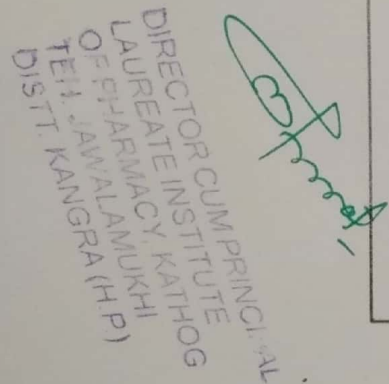 DIRECTOR CUM PRINCIPAL
LAUREATE INSTITUTE
OF PHARMACY, KATHOG
TEH. JAWALAMUKHI
DISTT. KANGRA (H.P)